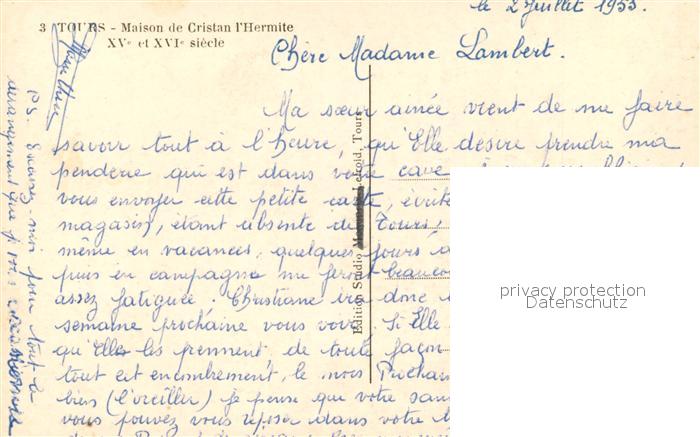 le 2 Juillet 1953.
3 TOURS - Maison de Cristan l'Hermite
XVe et XVIe siècle
Chère Madame Lambert.
Ma sœur ainée vient de me faire
savoir tout à l'heure, qu'Elle désire prendre ma
penderie qui est dans votre cave
vous envoyer cette petite carte,
magasin, étant absente de Tours,
même en vacances, quelques jours
puis en campagne me feront beaucou
assez fatiguée. Christiane ira donc
semaine prochaine vous voir. Si Elle
qu'Elle les prennent, de toute façon
tout cet encombrement, le mois Prochain
bien (l'oreiller) je pense que votre
vous pouvez vous reposer dans votre
PS. Excusez-moi pour tout
dérangement que je vous
Edition Studio
Tours
privacy protection
Datenschutz